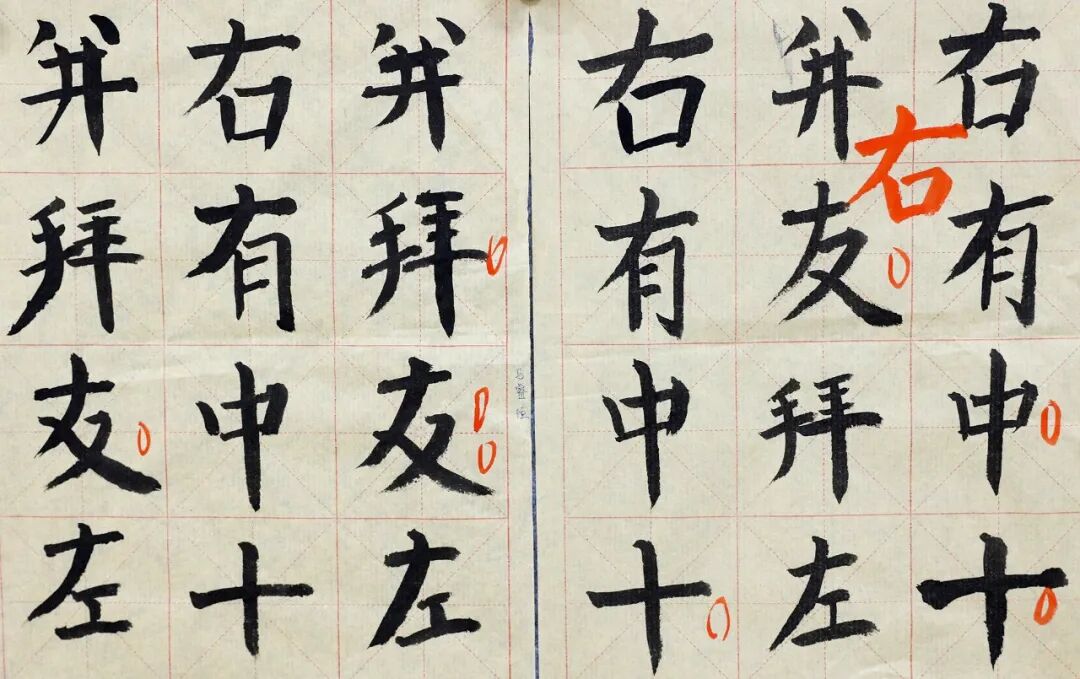 右有中十
右
并友拜左
右有中十
并拜友左
右有中十
并拜友左